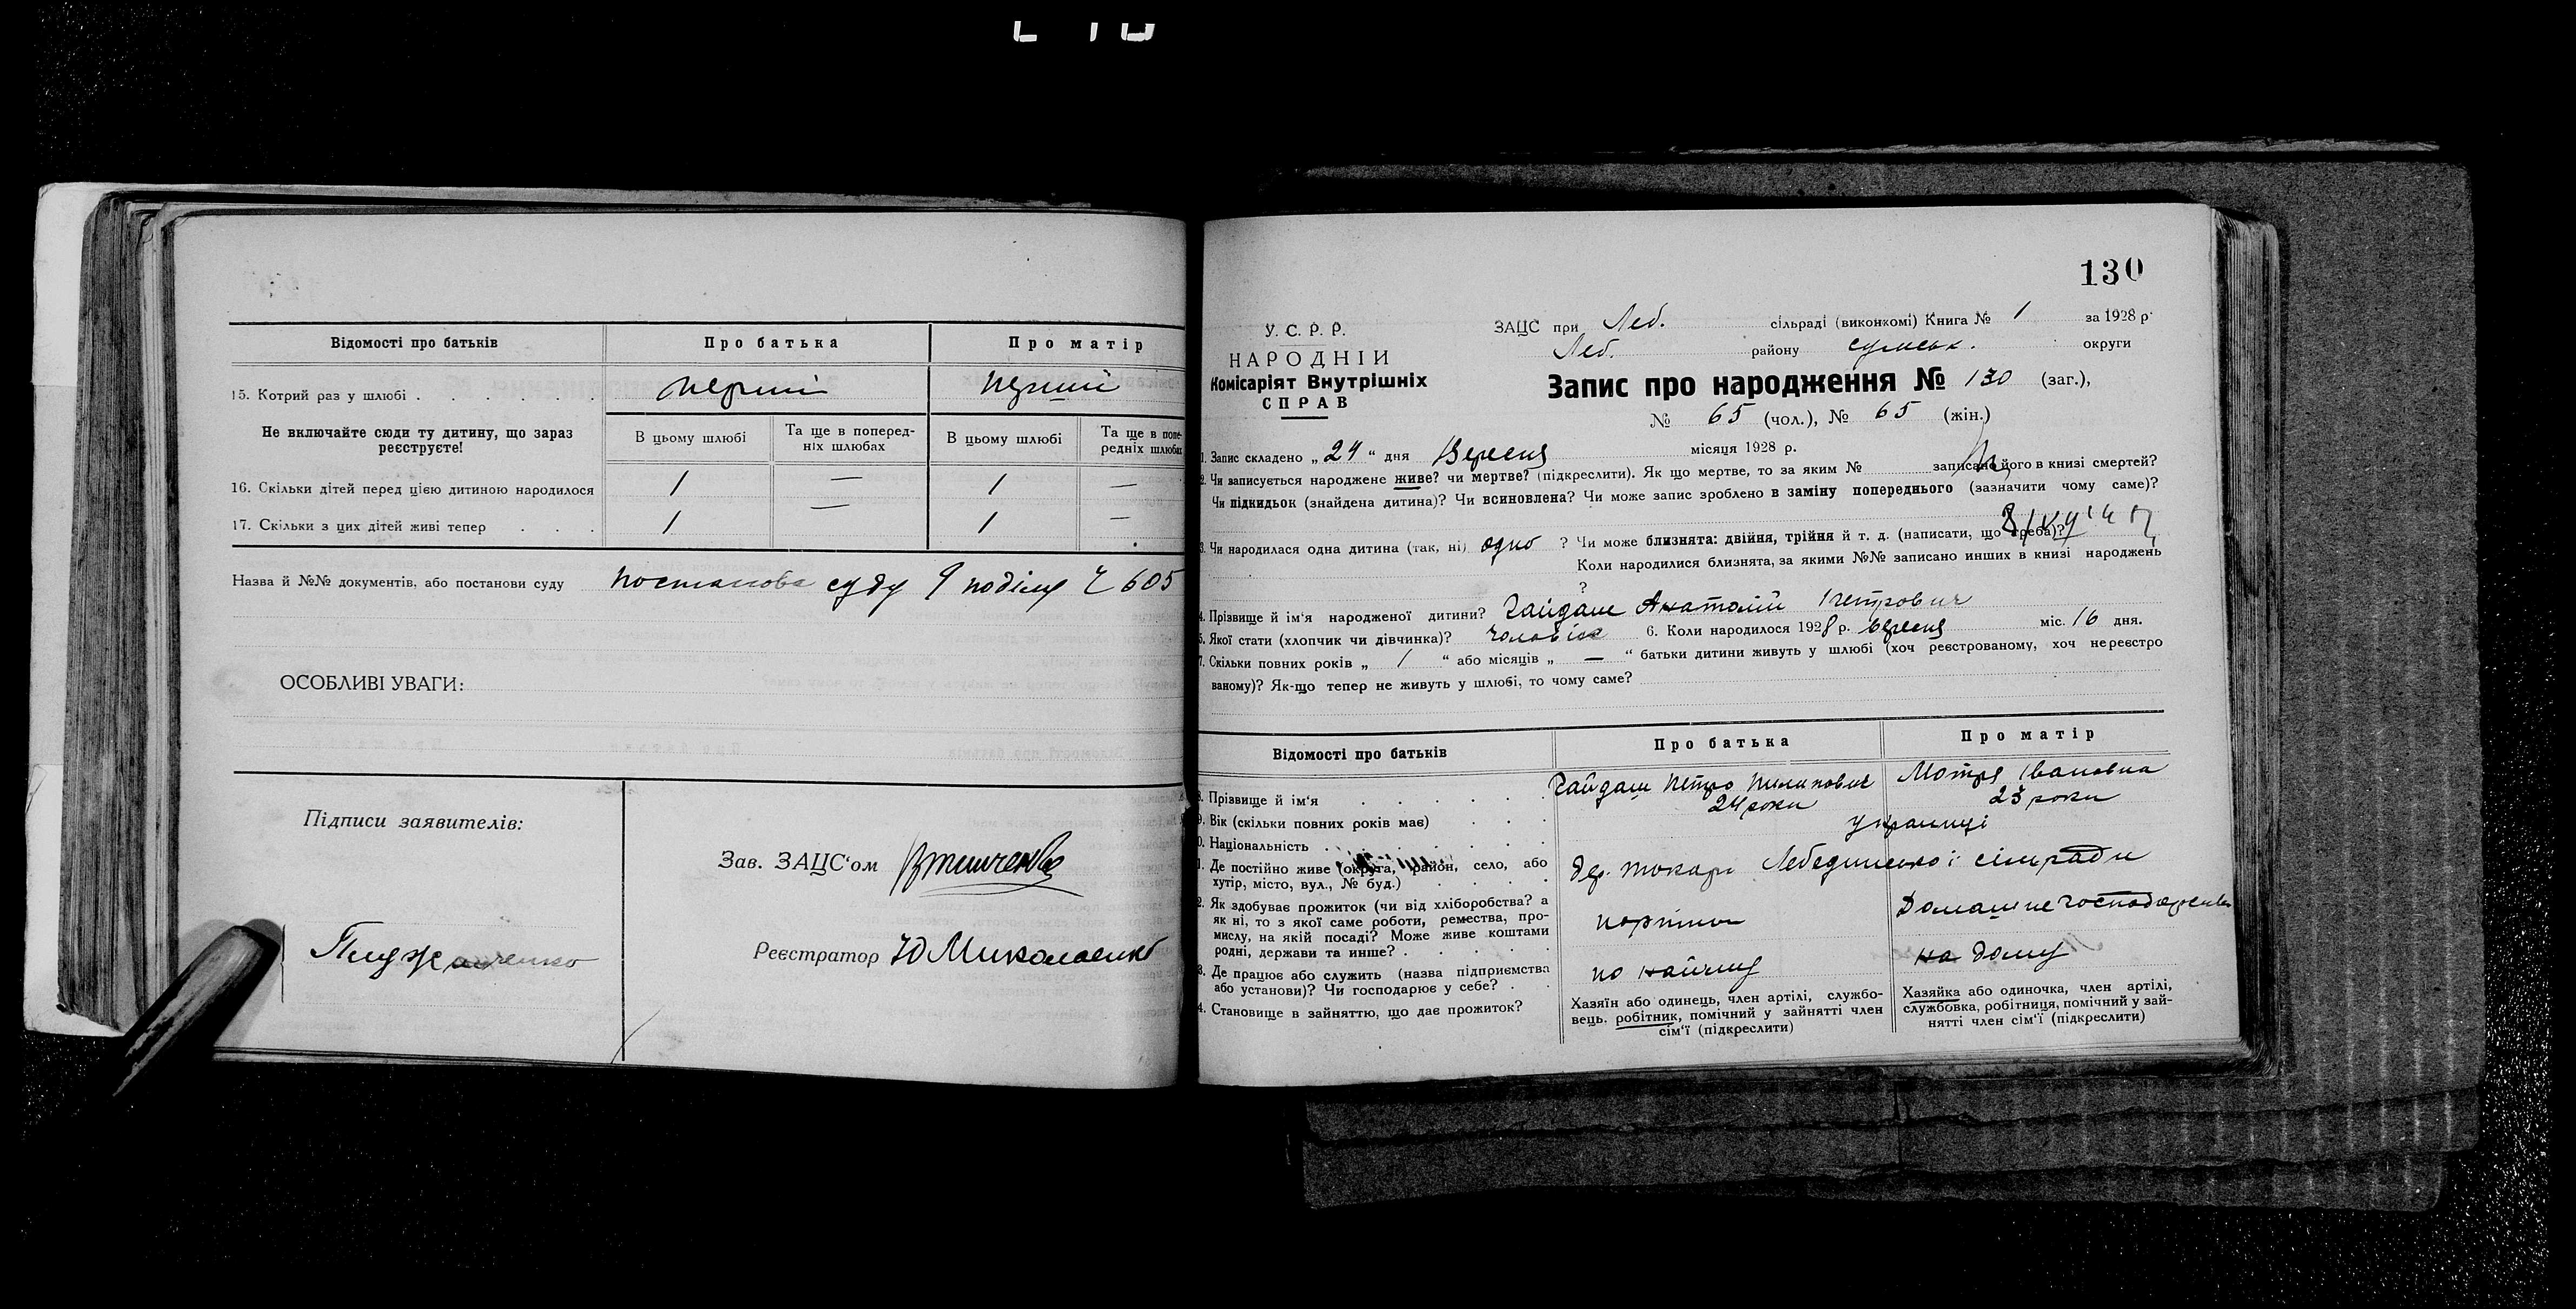 Відомості про батьків
Про батька
Про матір
15. Котрий раз у шлюбі
перший
перший
Не включайте сюди ту дитину, що зараз реєструєте!
В цьому шлюбі
Та ще в поперед-
ніх шлюбах
В цьому шлюбі
Та ще в попе-
редніх шлюбах
16. Скільки дітей перед цією дитиною народилося
1 — 1 —
17. Скільки з цих дітей живі тепер
1 — 1 —
Назва й №№ документів, або постанови суду постанова суду 605
ОСОБЛИВІ УВАГИ:
Підписи заявителів:
Зав. ЗАЦС‘ом
Реєстратор Ю Миколаенко
130
У. С. Р. Р.
НАРОДНІЙ
Комісаріят Внутрішніх
СПРАВ
ЗАЦС при Леб. сільраді (виконкомі) Книга № 1 за 1928 р.
Леб. району сумськ. округи
Запис про народження № 130 (заг.),
№ 65 (чол.), № 65 (жін.)
1. Запис складено „ 24 “ дня Вересня місяця 1928 р.
2. Чи записується народжене живе? чи мертве? (підкреслити). Як що мертве, то за яким № записано його в книзі смертей?
Чи підкидьок (знайдена дитина)? Чи всиновлена? Чи може запис зроблено в заміну попереднього (зазначити чому саме)?
3. Чи народилася одна дитина (так, ні) одно ? Чи може близнята: двійня, трійня й т. д. (написати, що треба)?
Коли народилися близнята, за якими №№ записано инших в книзі народжень
?
4. Прізвище й ім‘я народженої дитини? Гайдаш Анатолій Петрович
5. Якої стати (хлопчик чи дівчинка)? 6. Коли народилось 1928 р. вересня міс. 16 дня.
7. Скільки повних років „ 1 “ або місяців „ — “ батьки дитини живуть у шлюбі (хоч реєстрованому, хоч нереєстро
ваному)? Як-що тепер не живуть у шлюбі, то чому саме?
Відомості про батьків
Про батька
Про матір
8. Прізвище й ім‘я
Гайдаш Петро Пилипович
Мотря Івановна
9. Вік (скільки повних років має)
24 роки
23 роки
10. Національність
українці
11. Де постійно живе (округа, район, село, або
хутір, місто, вул., № буд.)
дер. Токари Лебединської сільради
12. Як здобуває прожиток (чи від хліборобства? а
як ні, то з якої саме роботи, ремества, про-
мислу, на якій посаді? Може живе коштами
родні, держави та инше?
Домашне господарство
13. Де працює або служить (назва підприємства
або установи)? Чи господарює у себе?
по найму
на дому
14. Становище в зайняттю, що дає прожиток?
Хазяїн або одинець, член артілі, службо-
вець. робітник, помічний у зайнятті член
сім‘ї (підкреслити)
Хазяйка або одиночка, член артілі,
службовка, робітниця, помічний у зай-
нятті член сім‘ї (підкреслити)